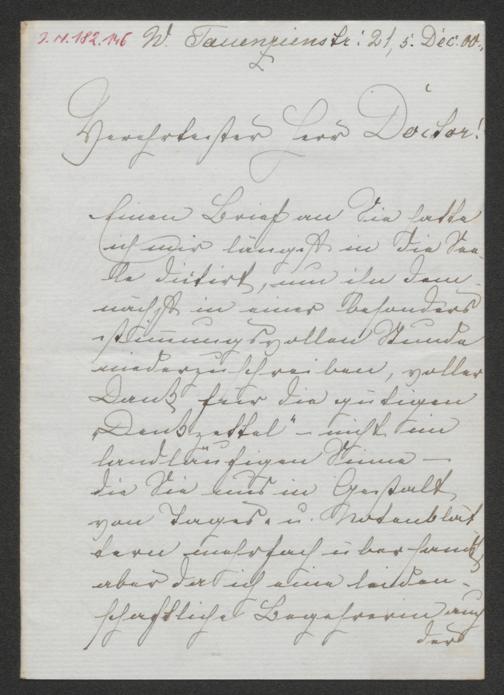 J.N. 182.146 W. Tauenzienstr: 21, 5. Dec. 00.
Verehrtester Herr Doctor!
Einen Brief an Sie hatte
ich mir längst in die See-
le dictirt, um ihn dem-
nächst in einer besonders
stimmungsvollen Stunde
niederzuschreiben, voller
Dank für die gütigen
„Denkzettel“ – nicht im
landläufigen Sinne –
die Sie uns in Gestalt
von Tages- u. Notenblät
tern mehrfach übersandt,
aber da ich eine leiden-
schaftliche Begehrerin auch
der